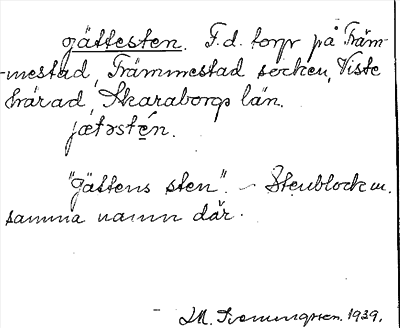 gättesten. F.d. torp på Främ-
-mestad, Främmestad socken, Viste
härad, Skaraborgs län.
jætəstén.
"Jättens sten". – Stenblock m.
samma namn där.
1939.